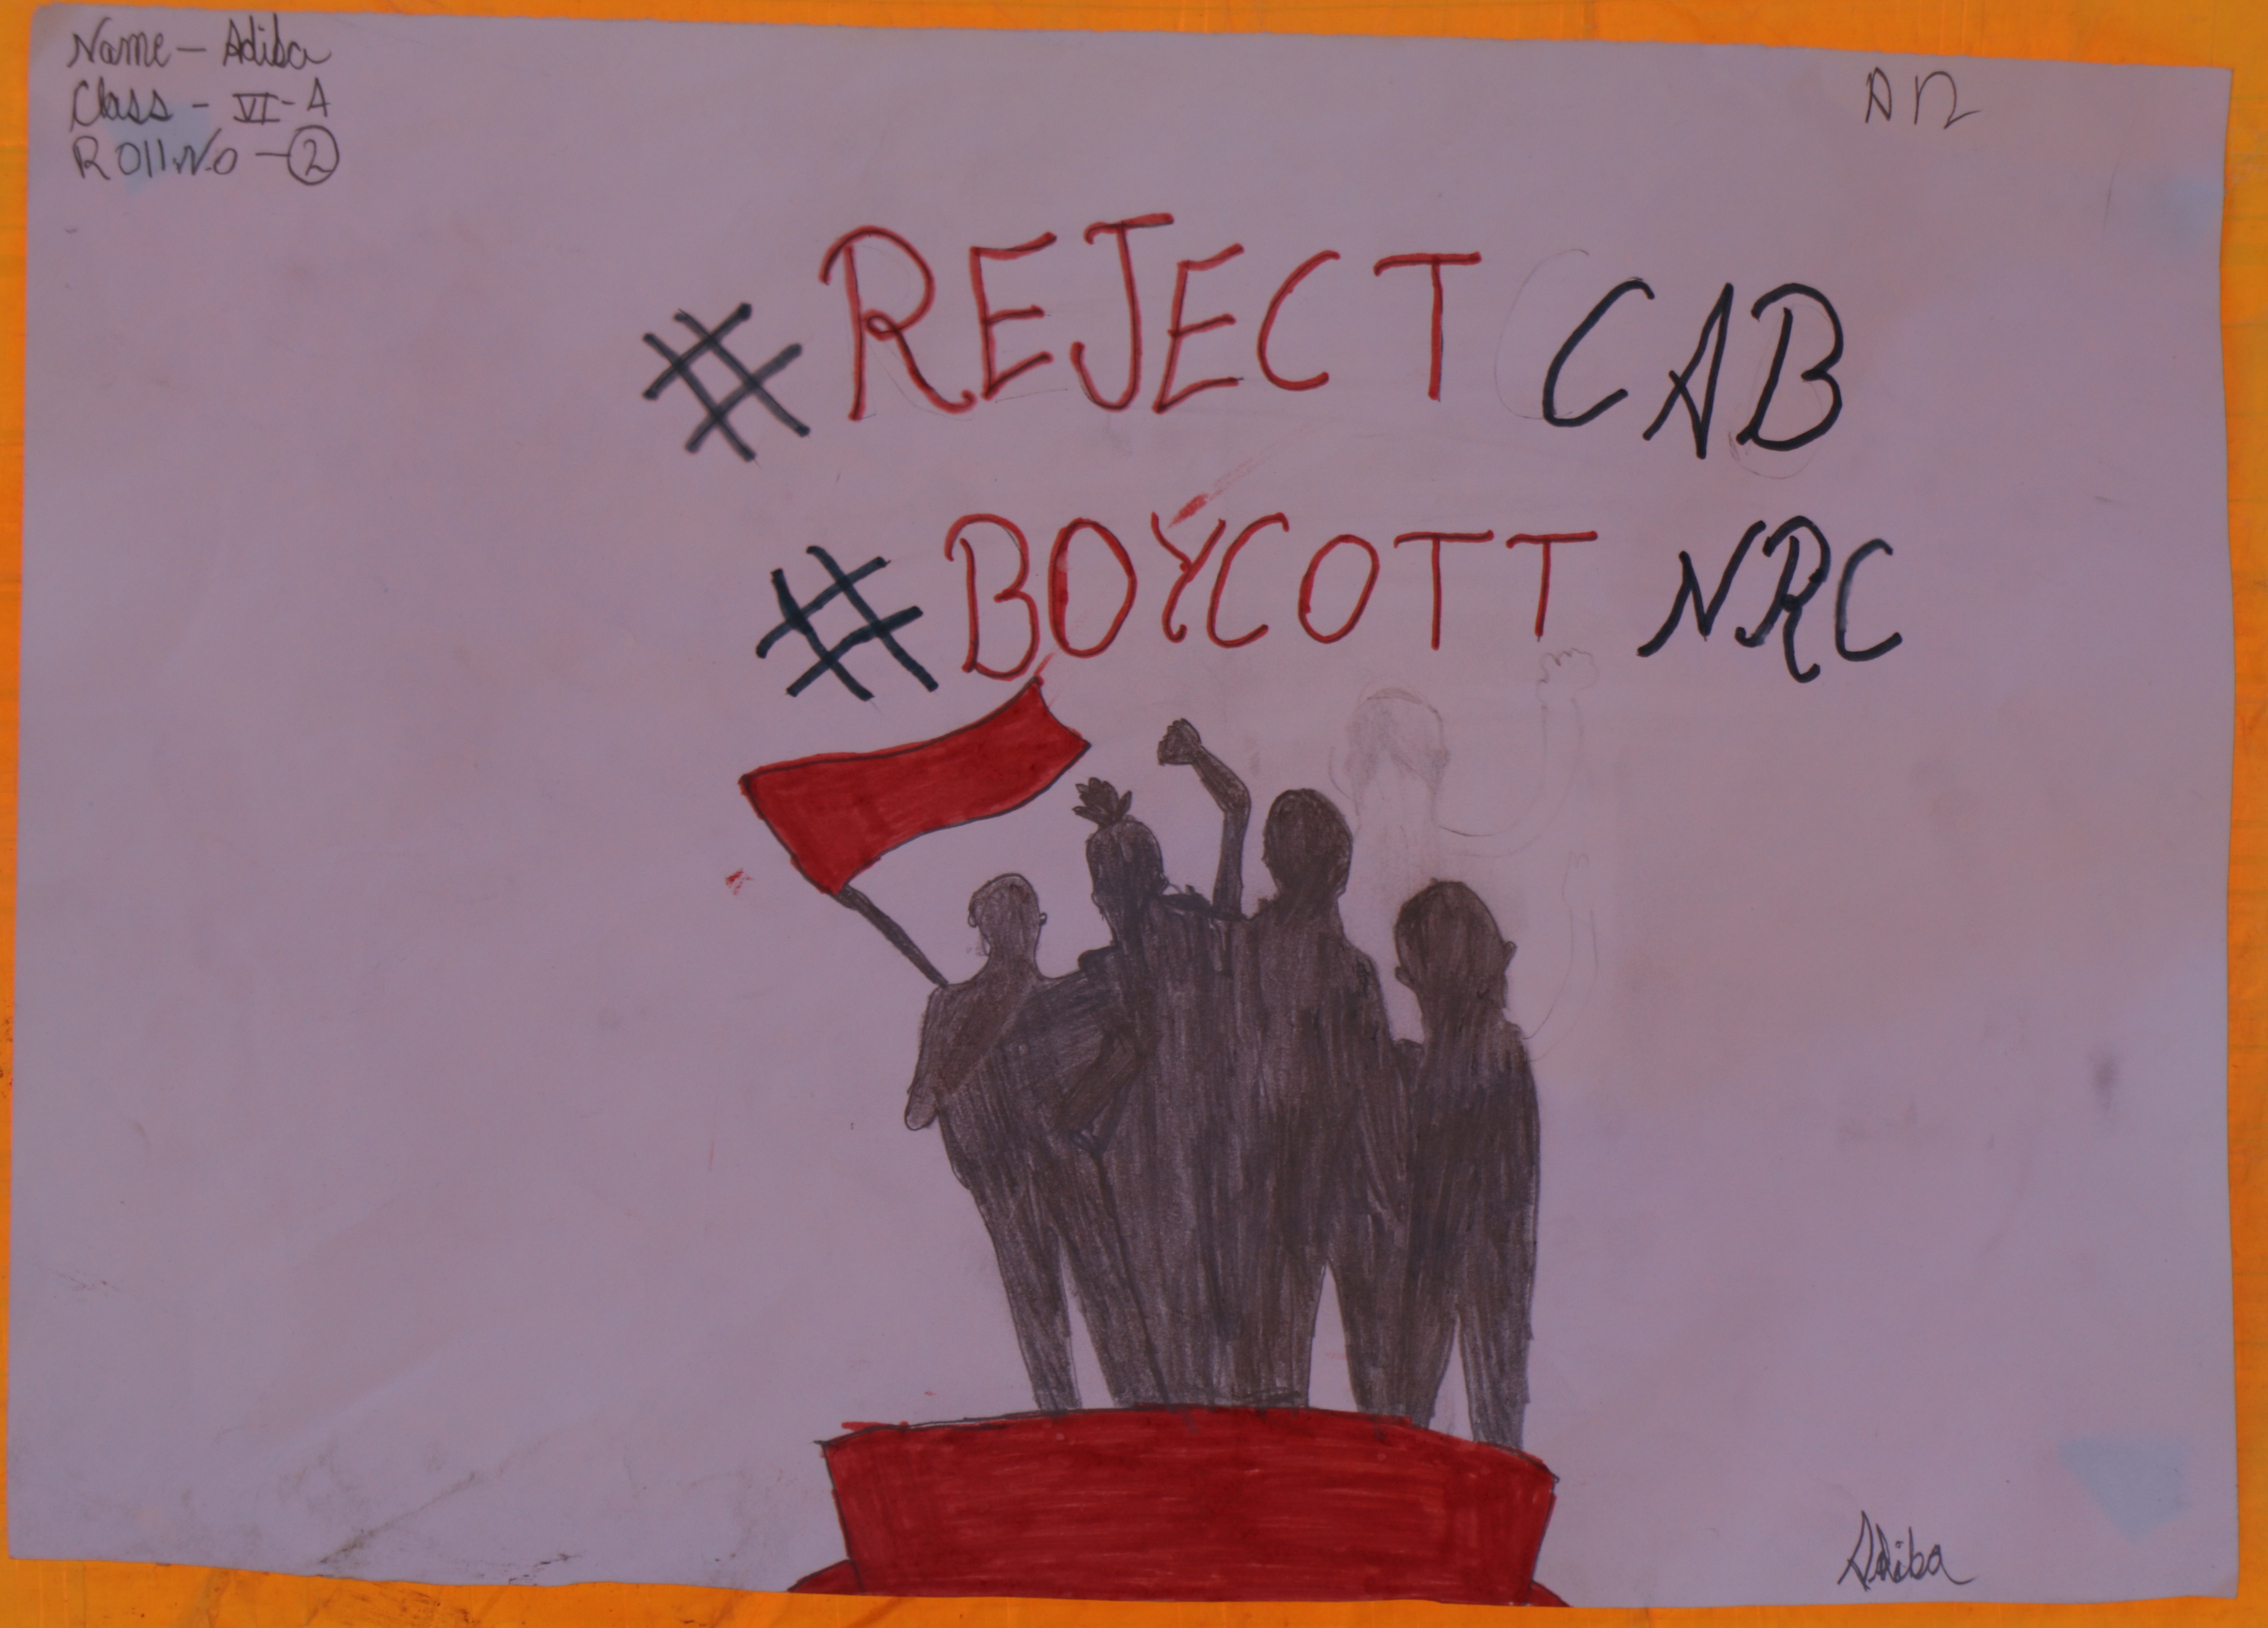 Name - Adiba
Class - VI - A
Roll No - 2
#REJECT CAB
#BOYCOTT NRC
Adiba